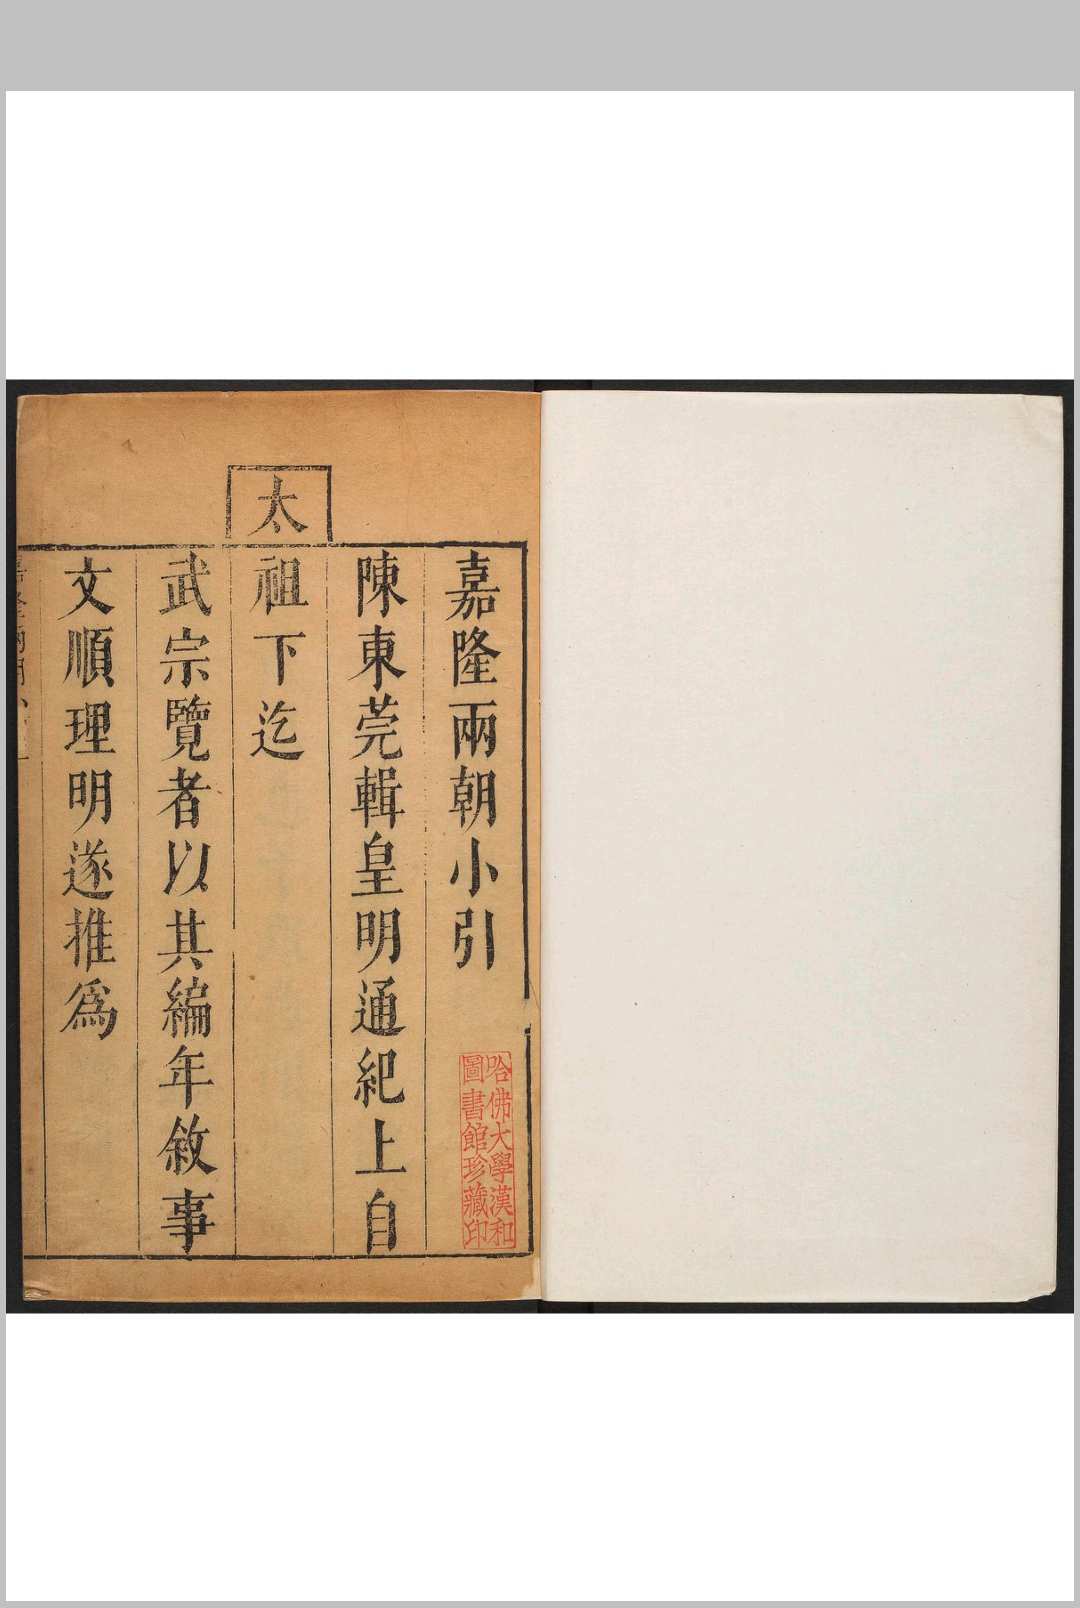 嘉隆兩朝小引
陳東莞輯皇明通紀上自
太祖下迄
武宗覽者以其編年敘事
文順理明遂推爲
哈佛大學漢和
圖書館珍藏印